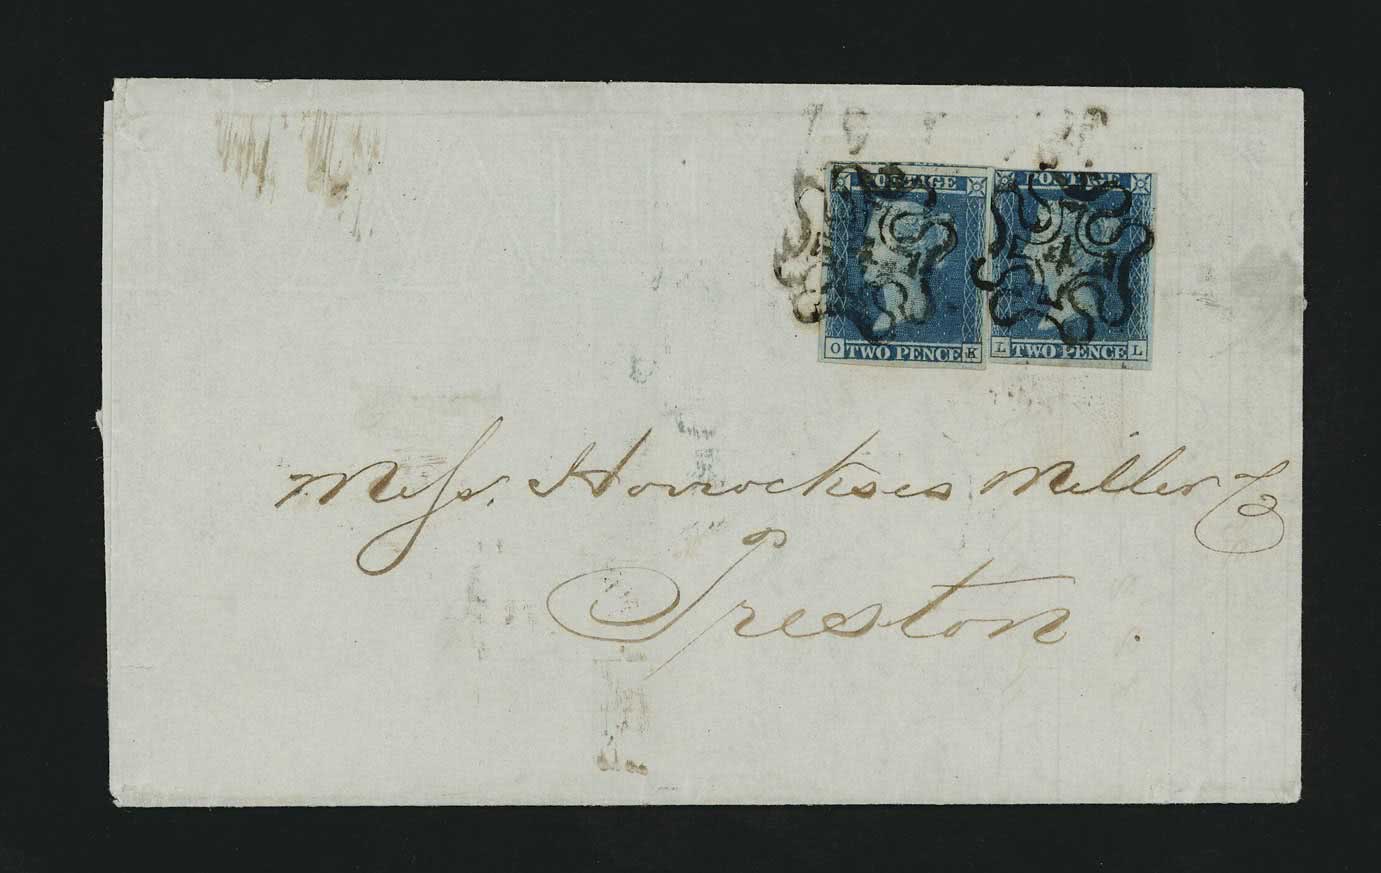 POSTAGE POSTAGE
4
O TWO PENCE K L TWO PENCE L
Messrs. Horrockses Miller & Co
Preston.